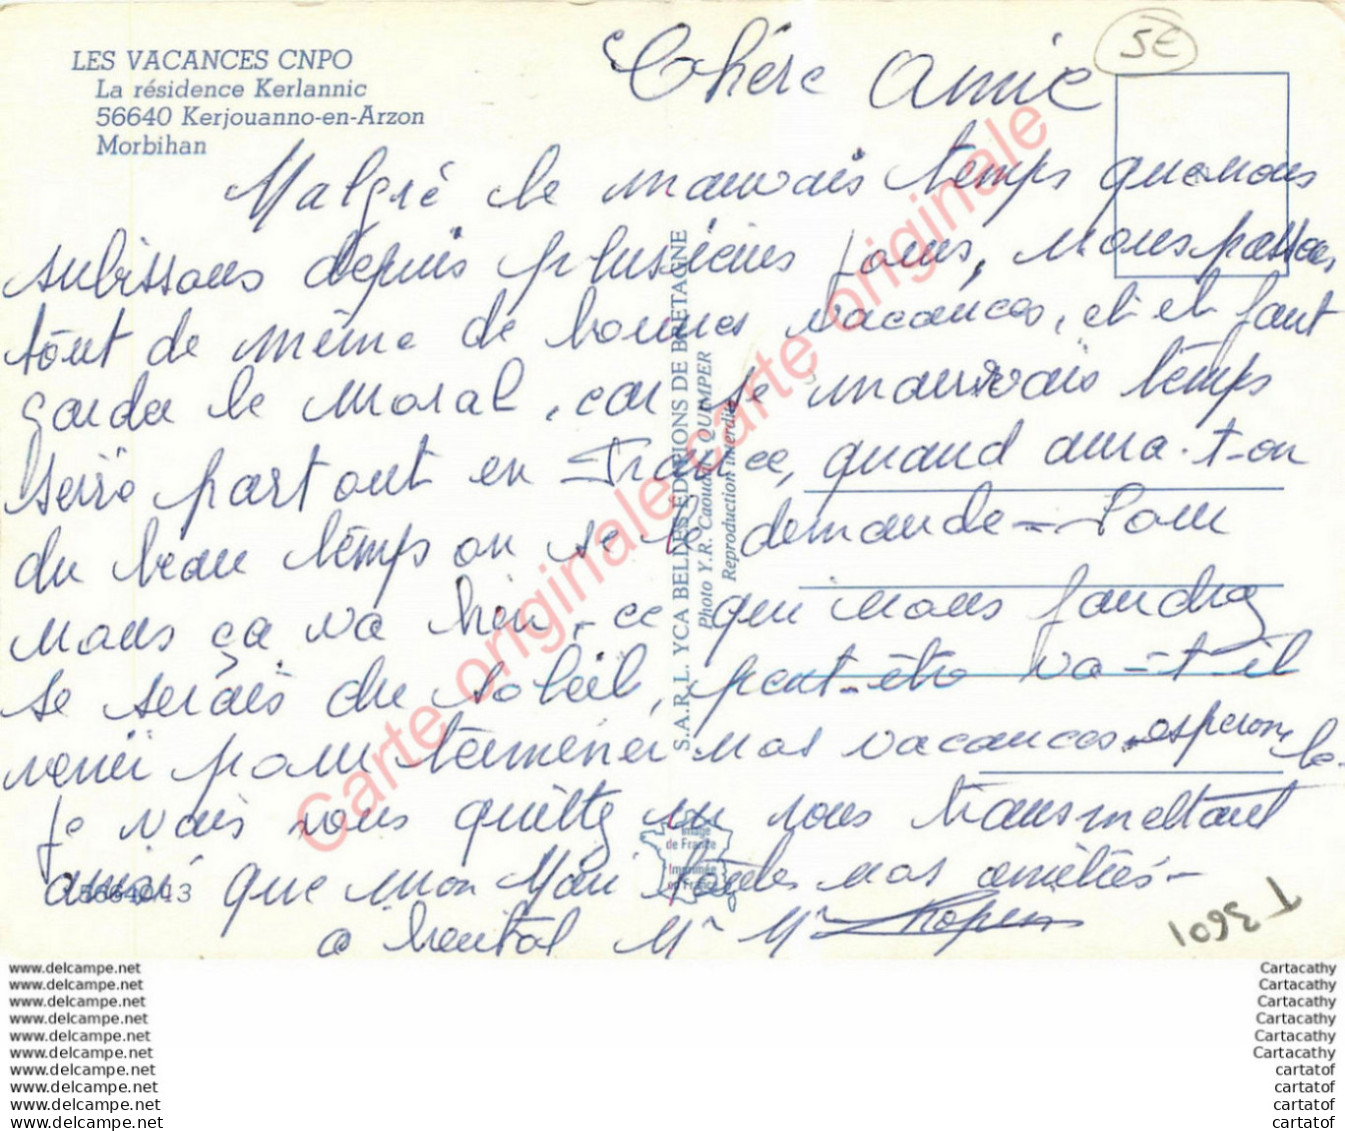 LES VACANCES CNPO
La résidence Kerlannic
56640 Kerjouanno-en-Arzon
Morbihan
5€
Chère Amie
Malgré le mauvais temps que nous
subissons depuis plusieurs jours, nous passons
tout de même de bonnes vacances, et il faut
garder le moral, car le mauvais temps
serré partout en France, quand aura-t-on
du beau temps on se le demande - Pour
nous ça va bien, ce qui nous faudra
se serais du soleil, peut-être va-t-il
venir pour terminer nos vacances esperons le
Je vais vous quitté en vous transmettant
ainsi que mon Mari toutes nos amitiés -
a bientot Mr Mr
S.A.R.L. YCA BELLES EDITIONS DE BRETAGNE
Photo Y.R. Caoudal QUIMPER
Reproduction interdite
de France
Imprimée
en France
56640/13
T 3601
Carte originale carte originale
www.delcampe.net
www.delcampe.net
www.delcampe.net
www.delcampe.net
www.delcampe.net
www.delcampe.net
www.delcampe.net
www.delcampe.net
www.delcampe.net
www.delcampe.net
Cartacathy
Cartacathy
Cartacathy
Cartacathy
Cartacathy
Cartacathy
cartatof
cartatof
cartatof
cartatof